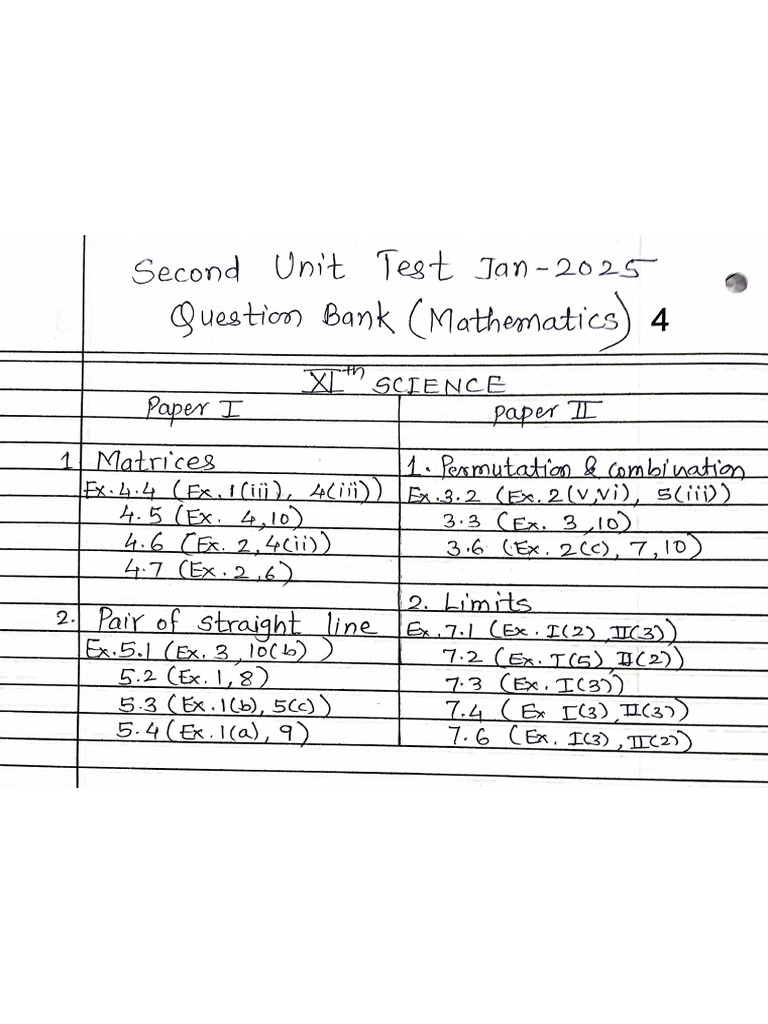 Second Unit Test Jan-2025
Question Bank (Mathematics) 4
XIth SCIENCE
Paper I
1 Matrices
Ex.4.4 (Ex. 1(iii), 4(iii))
4.5 (Ex. 4,10)
4.6 (Ex. 2,4(ii))
4.7 (Ex. 2,6)
2. Pair of straight line
Ex.5.1 (Ex. 3, 10(b))
5.2 (Ex. 1, 8)
5.3 (Ex. 1(b), 5(c))
5.4 (Ex. 1(a), 9)
paper II
1. Permutation & combination
Ex.3.2 (Ex. 2(v,vi), 5(iii))
3.3 (Ex. 3,10)
3.6 (Ex. 2(c), 7,10)
2. Limits
Ex.7.1 (Ex. I(2), II(3))
7.2 (Ex. I(5), II(2))
7.3 (Ex. I(3))
7.4 (Ex I(3), II(3))
7.6 (Ex. I(3), II(2))